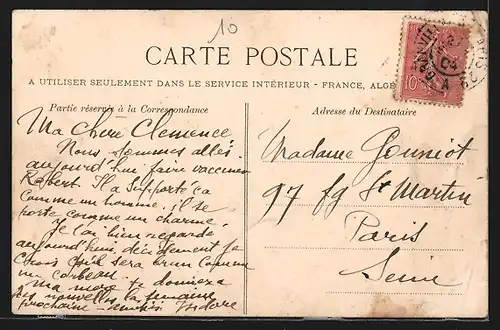 10
CARTE POSTALE
A UTILISER SEULEMENT DANS LE SERVICE INTÉRIEUR - FRANCE, ALGÉ
Partie réservée à la Correspondance
Adresse du Destinataire
Ma Chère Clemence
Nous sommes allés
aujourd'hui faire vacciner
Robert. Il a supporté ça
comme un homme, il se
porte comme un charme
Je l'ai bien regardé
aujourd'hui décidément je
crois qu'il sera brun comme
un corbeau.
ma mère te donnera
des nouvelles la semaine
prochaine Isidore
Madame Gouniot
97 fg St Martin
Paris
Seine
10
04